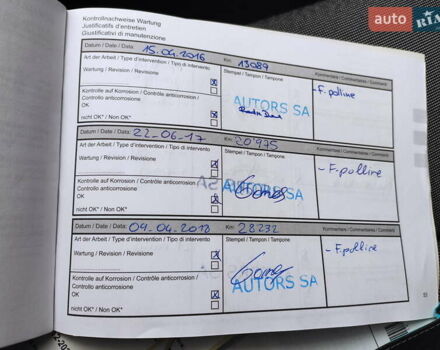 auto RIA
Kontrollnachweise Wartung
Justificatifs d'entretien
Giustificativi di manutenzione
Datum / Date / Data: 15.04.2016 Km: 13089
Art der Arbeit / Type d'intervention / Tipo di intervento Stempel / Tampon / Tampone Kommentare / Commentaires / Commenti
Wartung / Revision / Revisione X - F. polline
Kontrolle auf Korrosion / Contrôle anticorrosion /
Controllo anticorrosione AUTORS SA
OK
nicht OK* / Non OK* X
Datum / Date / Data: 22-06-17 Km: 20975
Art der Arbeit / Type d'intervention / Tipo di intervento Stempel / Tampon / Tampone Kommentare / Commentaires / Commenti
Wartung / Revision / Revisione X - F. polline
Kontrolle auf Korrosion / Contrôle anticorrosion /
Controllo anticorrosione AUTORS SA
OK* X
nicht OK* / Non OK*
Datum / Date / Data: 09.04.2018 Km: 28232
Art der Arbeit / Type d'intervention / Tipo di intervento Stempel / Tampon / Tampone Kommentare / Commentaires / Commenti
Wartung / Revision / Revisione X - F. polline
Kontrolle auf Korrosion / Contrôle anticorrosion /
Controllo anticorrosione AUTORS SA
OK X
nicht OK* / Non OK*